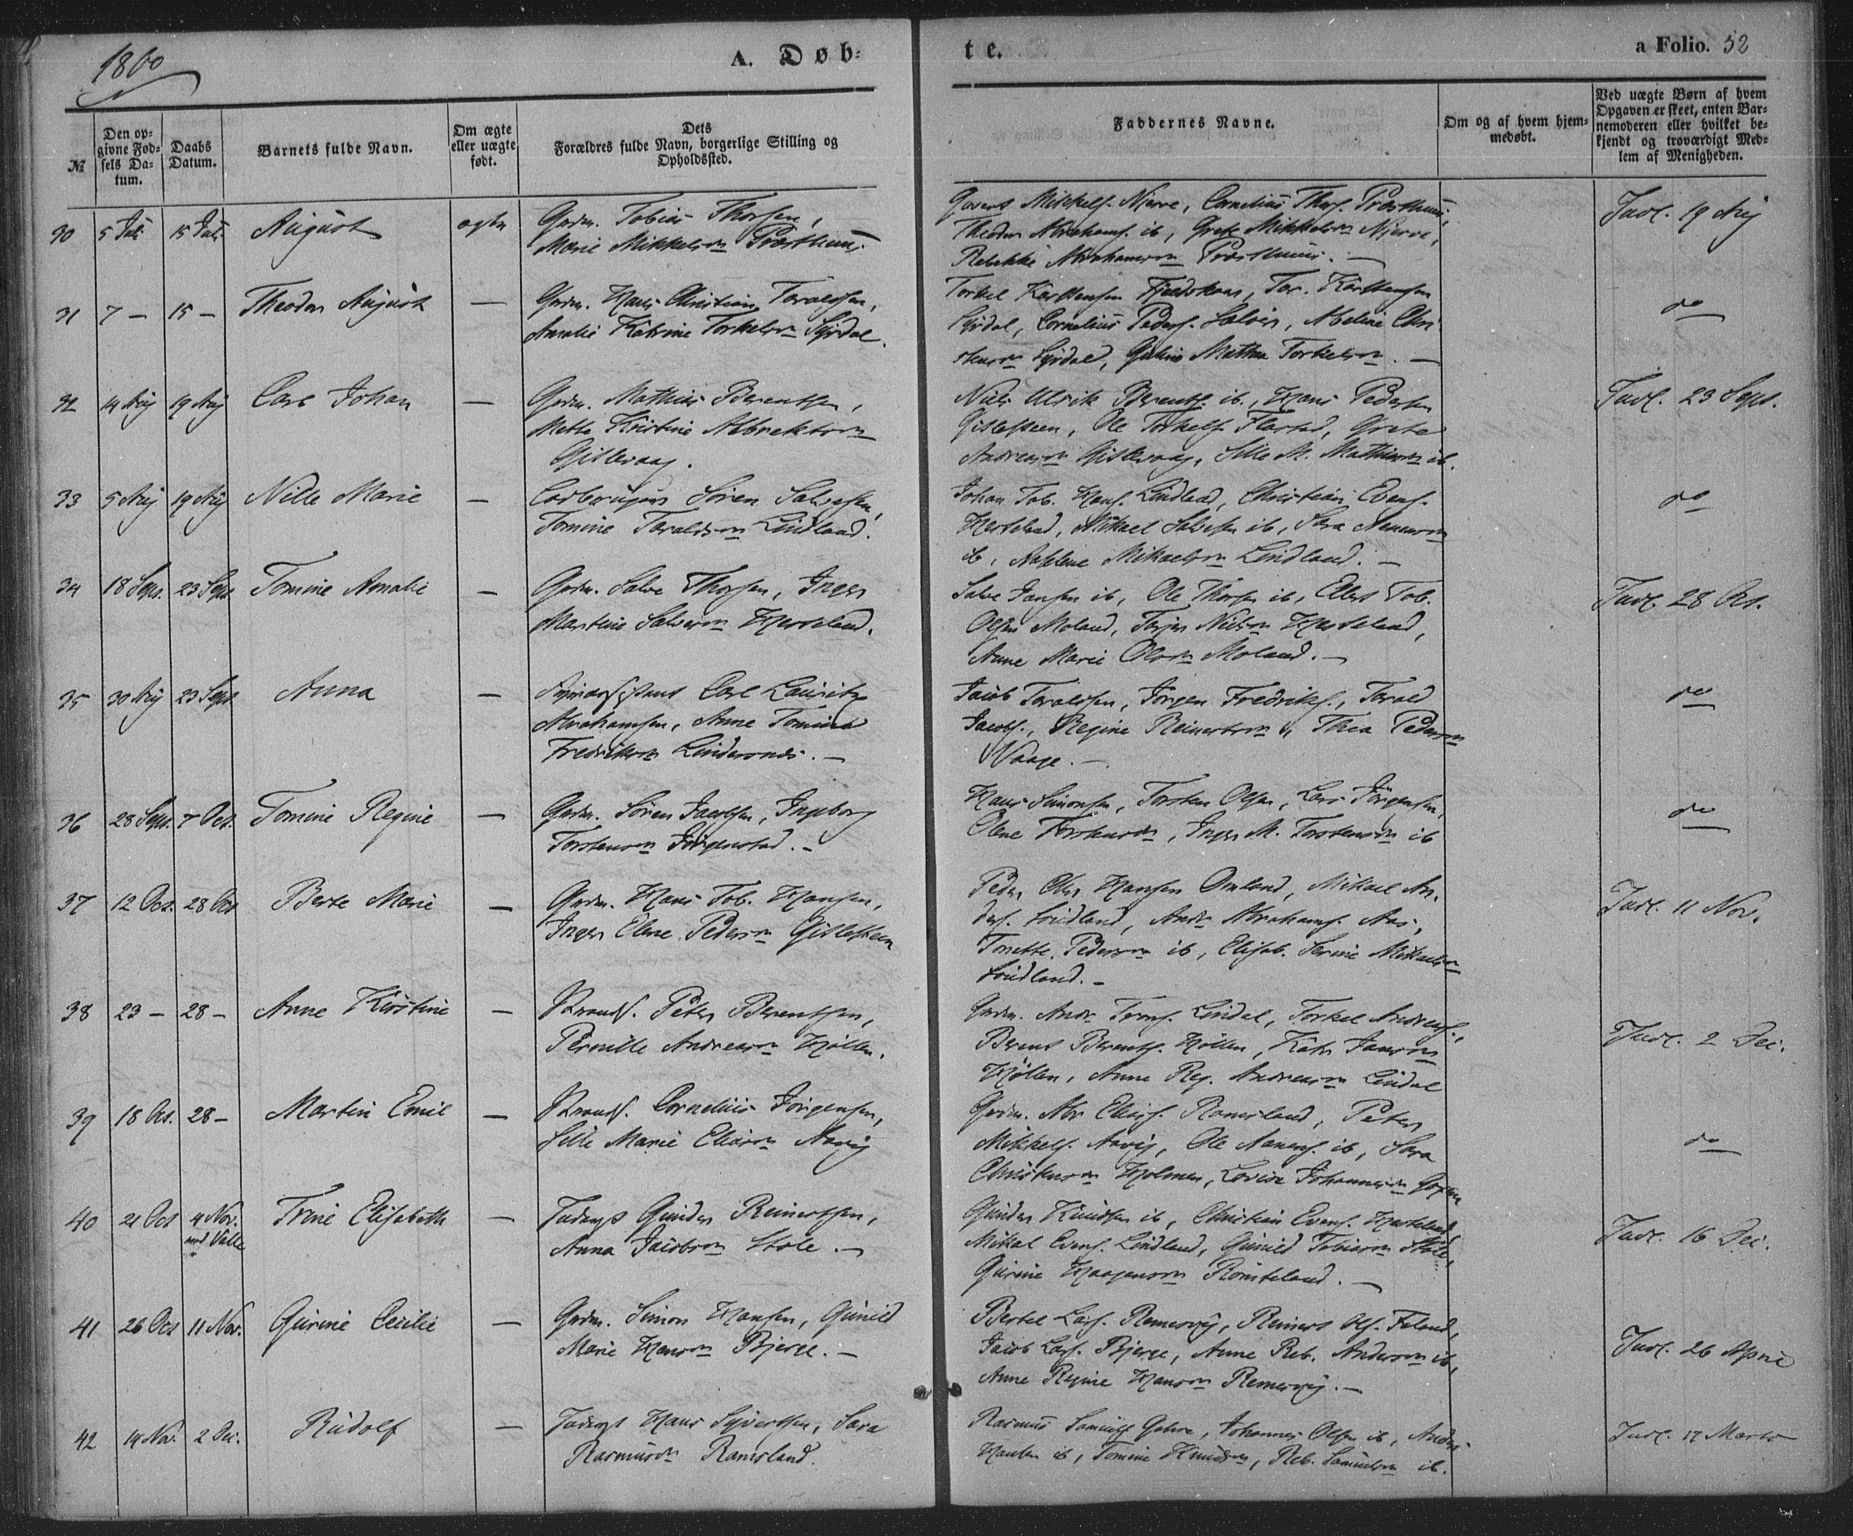 1860
A. Døb-
te.
a Folio. 52
№
Den opgivne Fødsels Datum.
Daabs Datum.
Barnets fulde Navn.
Om ægte eller uægte født.
Dets Forældres fulde Navn, borgerlige Stilling og Opholdssted.
Faddernes Navne.
Om og af hvem hjemmedøbt.
Ved uægte Børn af hvem Opgaven er skeet, enten Barnemoderen eller hvilket bekjendt og troværdigt Medlem af Menigheden.
30 5 Juli 15 Juli August ægte
Gdm. Tobias Thorsen,
Marie Mikkelsn
Mikkels. Njerve, Cornelius Thors.
Theodor Abrahams. ib, Grete Mikkelsn Njerve,
Rebekke Abrahamsn
Indl. 19 Aug
31 7 – 15 – Theodor August —
Gdm. Hans Christian Taraldsen,
Amalie Katrine Torkelsn Syrdal.
Torkel Karstensen, Tor. Karstensen
Syrdal, Cornelius Peders. Abeline Chri
stensn Syrdal, Mathea Torkelsn. —
do
32 14 Aug 19 Aug Carl Johan —
Gdm. Mathias Berentsen,
Mette Kristine Albrektsn
Gislevaag.
Niels Ulrik Berents. ib, Hans Pedersen
Ole Torkels. Grete
Andreasn Gislevaag, Sille M. Mathiasn ib.
Indl. 23 Sept.
33 5 Aug 19 Aug Nille Marie —
Søren Salvesen,
Tomine Taraldsn Lindland.
Johan Tob. Hans. Lindland, Christian Evens.
Herseland, Mikael Salvesen ib, Sara
ib, Mikaelsn Lindland. —
do
34 18 Sept. 23 Sept Tomine Amalie —
Gdm. Salve Thorsen, Inger
Martine Salvesn Herseland.
Salve Jansen ib, Ole Thorsen ib, Tob.
Olsen Moland, Nielsn Herseland,
Anne Marie Olsn Moland. —
Indl. 28 Oct.
35 30 Aug 23 Sept Anna —
Carl Lauritz
Abrahamsen, Anne Tomine
Fredriksn —
Jacob Taraldsen, Jørgen Fredriks., Tarald
Jacobs., Regine Reinertsn, Thea Pedersn
Vaage. —
do
36 28 Sept. 7 Oct. Tomine Regine —
Gdm. Søren Jacobsen, Ingeborg
Torstensn Jørgenstad. –
Hans Simonsen, Torsten Olsen, Lars Jørgensen,
Olene Torstensn, Inger M. Torstensn ib
do
37 12 Oct. 28 Oct Berte Marie —
Gdm. Hans Tob. Hansen,
Inger Elene Pedersn Gislesteen
Peder Hansen Omland, Mikael An
ders. Lindland, Andr. Abrahams. Aas,
Tonette Pedersn ib, Elisab. Serine Mikaelsn
Lindland. –
Indl. 11 Nov.
38 23 – 28 – Anne Kirstine —
Strands. Peter Berentsen,
Pernille Andreasn Høllen.
Gdm. Andr. Lindal, Torkel Andreas.,
Berent Berents. Høllen, Jansn
Høllen, Anne Reg. Andreasn Lindal
Indl. 2 Dec.
39 18 Oct. 28 – Martin Emil —
Strands. Cornelius Jørgensen,
Sille Marie Eliasn Aavig
Gdm. Abr. Elias. Ramsland, Peter
Mikkels. Aavig, Ole ib, Sara
Christensn Holmen, Lovise Johannesn
do
40 21 Oct 4 Nov. ved Valle Trine Elisabeth —
Inderst Gunder Reinertsen,
Anna Jacobsn Stole. —
Gunder Knudsen ib, Christian Evens. Herseland,
Mikal Evens. Lindland, Gunild Tobiasn Stole,
Gurine Haagensn Rømteland. —
Indl. 16 Dec.
41 26 Oct 11 Nov. Gurine Cecilie —
Gdm. Simon Hansen, Gunild
Marie Hansn Bjerge. —
Bertel Lars. Remesvig, Reinert Ols.
Jacob Lars. Bjerge, Anne Reb. Andersn ib,
Anne Regine Hansn Remesvig. —
Indl. 26 April
42 14 Nov. 2 Dec. Rudolf —
Inderst Hans Syvertsen, Sara
Rasmusn Ramsland.
Rasmus Samuels. Johannes Olsen ib, Anders
Hansen ib, Tomine Knudsn, Reb. Samuelsn ib.
Indl. 17 Marts